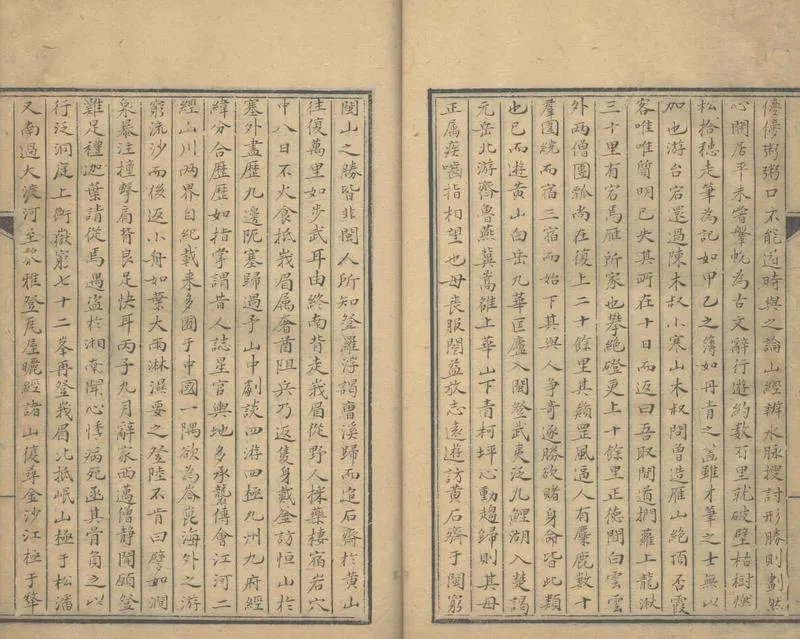 粥粥口不能道時與之論山經辨水脉搜討形勝則劃然
心開居平未嘗鞶帨為古文辭行遊約數百里就破壁枯樹燃
松拾穗走筆為記如甲乙之簿如丹青之畫雖才筆之士無以
加也游台宕還過陳木叔小寒山木叔問曾造雁山絕頂否霞
客唯唯簡明已失其所在十日而返曰吾取間道捫蘿上龍湫
三十里有宕焉雁所家也攀絕磴更上十餘里正德間白雲雲
外兩僧團瓢尚在復上二十餘里其巔罡風逼人有麋鹿數十
羣圍繞而宿三宿而始下其與人爭奇逐勝欲賭身命皆此類
也已而遊黃山白岳九華匡廬入閩登武夷泛九鯉湖入楚謁
元岳北游齊魯燕冀嵩雒上華山下青柯坪心動趨歸則其母
正属疾嚙指相望也母喪服闋益放志遠遊訪黃石齋于閩窮
閩山之勝皆非閩人所知登羅浮謁曹溪歸而追石齋於黃山
往復萬里如步武耳由終南背走峩眉從野人採藥棲宿岩穴
中八日不火食抵峩眉属奢酋阻兵乃返隻身戴釜訪恒山於
塞外盡歷九邊阨塞歸過予山中劇談四游四極九州九府經
緯分合歷歷如指掌謂昔人誌星官輿地多承襲傳會江河二
經山川兩界自紀載来多囿于中國一隅欲為崙崑海外之游
窮流沙而後返小舟如葉大雨淋濕要之登陸不肯曰譬如澗
泉暴注撞擊肩背良足快耳丙子九月辭家西邁僧静聞願登
難足禮迦葉請從焉遇盗於湘南聞心悸病死函其骨負之以
行泛洞庭上衡嶽窮七十二峯再登峩眉北抵岷山極于松潘
又南過大渡河至黎雅登瓦屋曬經諸山復尋金沙江極于犛